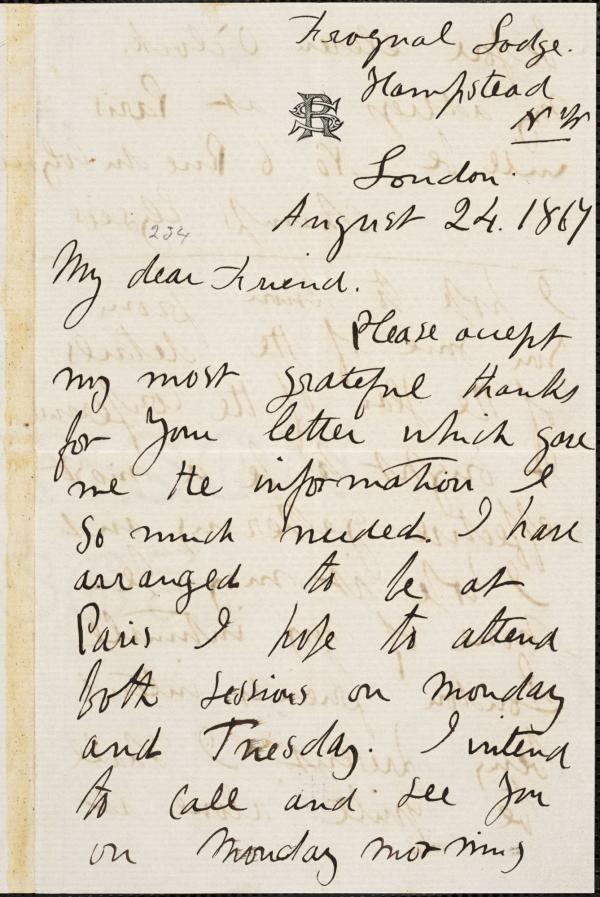 Frognal Lodge.
Hampstead
NW
London.
August 24. 1867
234
My dear Friend.
Please accept
my most grateful thanks
for your letter which gave
me the information I
so much needed. I have
arranged to be at
Paris I hope to attend
both sessions on Monday
and Tuesday. I intend
to call and see you
on Monday morning